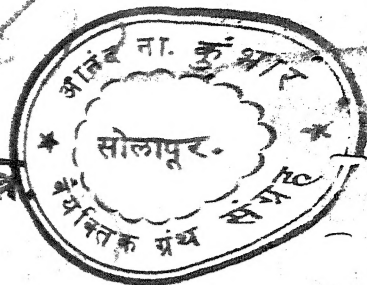 आनंद ना. कुंभार
सोलापूर.
वैयक्तिक ग्रंथ संग्रह